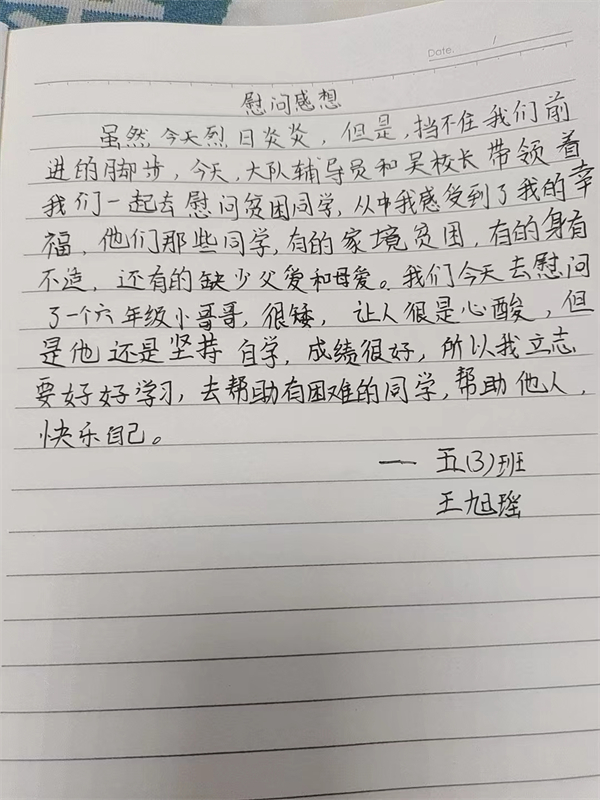 Date. /
慰问感想
虽然今天烈日炎炎，但是，挡不住我们前
进的脚步，今天，大队辅导员和吴校长带领着
我们一起去慰问贫困同学，从中我感受到了我的幸
福，他们那些同学，有的家境贫困，有的身有
不造，还有的缺少父爱和母爱。我们今天去慰问
了一个六年级小哥哥，很矮，让人很是心酸，但
是他还是坚持自学，成绩很好，所以我立志
要好好学习，去帮助有困难的同学，帮助他人，
快乐自己。
一 五(3)班
王旭瑶